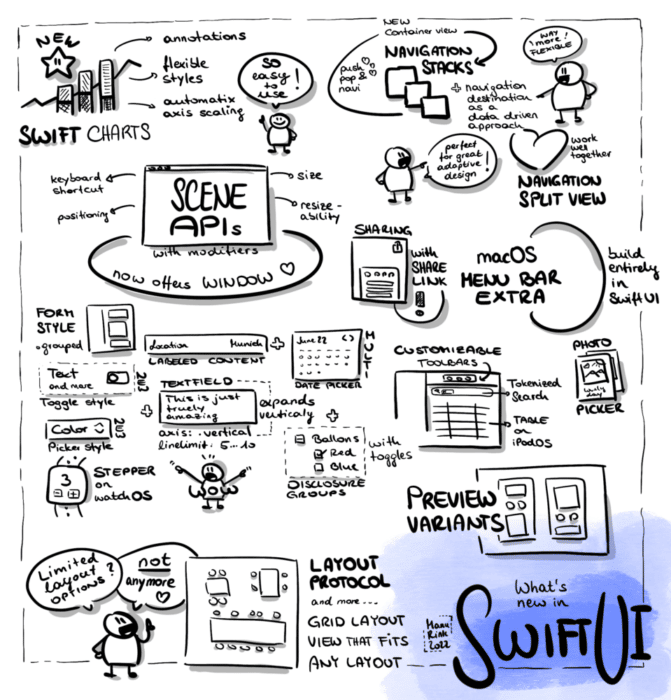 NEW
annotations
flexible
styles
automatix
axis scaling
SWIFT CHARTS
SO
easy
to
use!
NEW
Container view
NAVIGATION
STACKS
push
pop &
navi
+ navigation
destination
as a
data driven
approach
WAY
more!
FLEXIBLE
perfect
for great
adaptive
design!
work
well
together
NAVIGATION
SPLIT VIEW
keyboard
shortcut
positioning
SCENE
APIs
size
resize-
ability
with modifiers
now offers WINDOW
SHARING
with
SHARE
LINK
macOS
MENU BAR
EXTRA
build
entirely
in
SwiftUI
FORM
STYLE
.grouped
Location Munich
LABELED CONTENT
+
June 22 < >
MULTI
DATE PICKER
Text
and more
Toggle style
+
TEXTFIELD
This is just
truely
amazing
axis: .vertical
linelimit: 5...10
expands
verticaly
+
Color
Picker style
3
STEPPER
on
watchOS
WOW
Ballons
Red
Blue
with
toggles
DISCLOSURE
GROUPS
CUSTOMIZABLE
TOOLBARS
Tokenized
Search
TABLE
on
iPadOS
PHOTO
PICKER
PREVIEW
VARIANTS
Limited
layout
OPTIONS?
not
anymore
LAYOUT
PROTOCOL
and more...
GRID LAYOUT
VIEW THAT FITS
ANY LAYOUT
Manu
Rink
2022
What's
new in
SWIFTUI